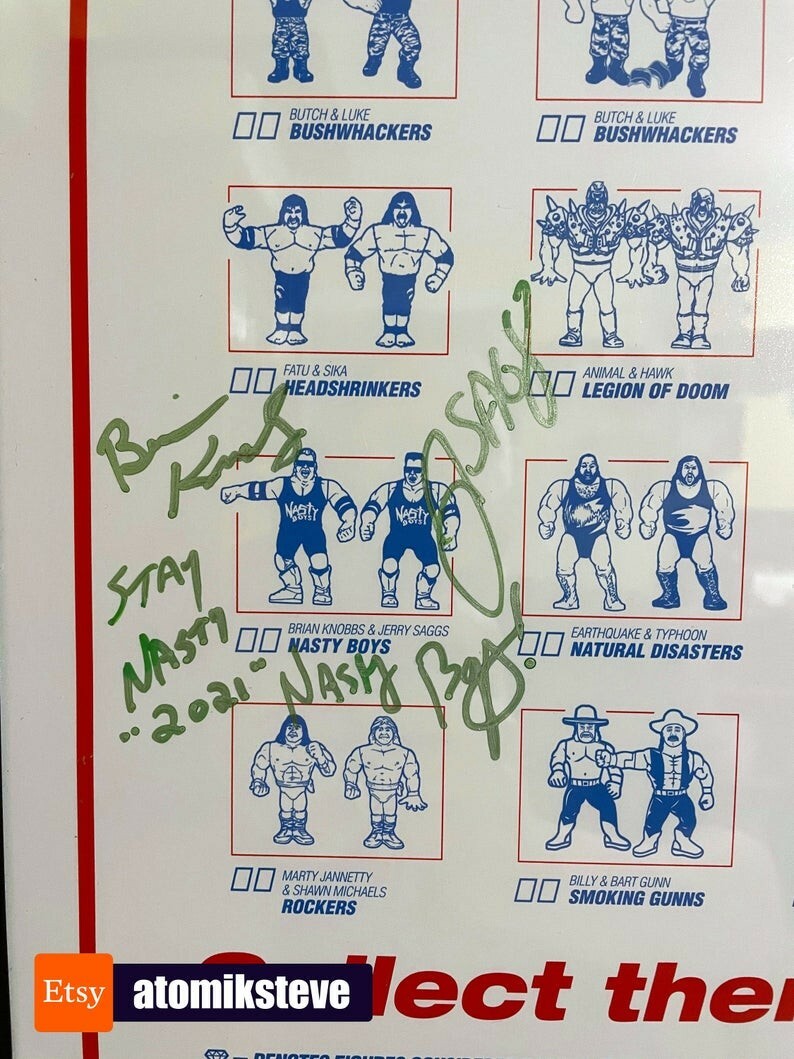 BUTCH & LUKE
BUSHWHACKERS
BUTCH & LUKE
BUSHWHACKERS
FATU & SIKA
HEADSHRINKERS
ANIMAL & HAWK
LEGION OF DOOM
Brian
Knobs
SAGS
NASTY
BOYS
NASTY
BOYS
STAY
NASTY
"2021"
Nasty Boys!
BRIAN KNOBBS & JERRY SAGGS
NASTY BOYS
EARTHQUAKE & TYPHOON
NATURAL DISASTERS
MARTY JANNETTY
& SHAWN MICHAELS
ROCKERS
BILLY & BART GUNN
SMOKING GUNNS
Collect the
Etsy atomiksteve
DENOTES FIGURES